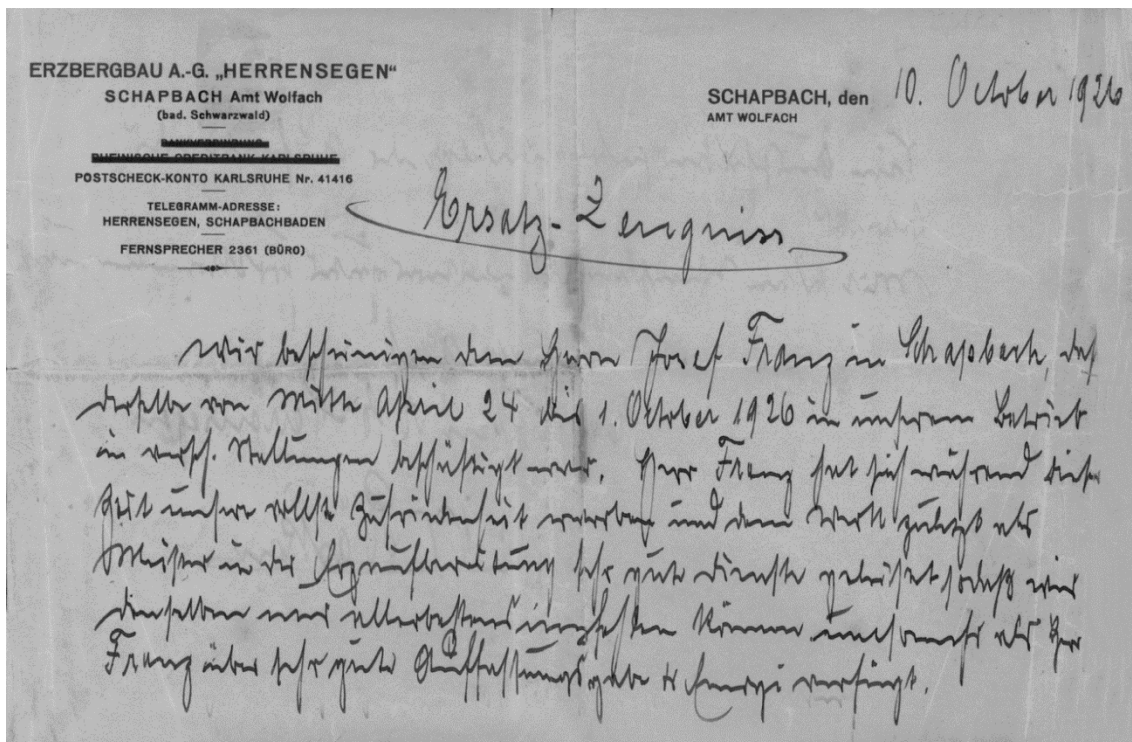 ERZBERGBAU A.-G. „HERRENSEGEN“
SCHAPBACH Amt Wolfach
(bad. Schwarzwald)
BANKVERBINDUNG
RHEINISCHE CREDITBANK KARLSRUHE
POSTSCHECK-KONTO KARLSRUHE Nr. 41416
TELEGRAMM-ADRESSE:
HERRENSEGEN, SCHAPBACHBADEN
FERNSPRECHER 2361 (BÜRO)
SCHAPBACH, den 10. October 1926
AMT WOLFACH
Ersatz-Zeugniss
Wir bescheinigen dem Herrn Josef Franz in Schapbach, daß
derselbe von Mitte April 24 bis 1. October 1926 in unserem Betrieb
in versch. Stellungen beschäftigt war. Herr Franz hat sich während dieser
Zeit unsere vollste Zufriedenheit erworben und dem Werk zuletzt als
Meister in der Erzaufbereitung sehr gute Dienste geleistet sodaß wir
denselben nur allerbestens empfehlen können umsomehr als Herr
Franz über sehr gute Auffassungsgabe u Energi verfügt.